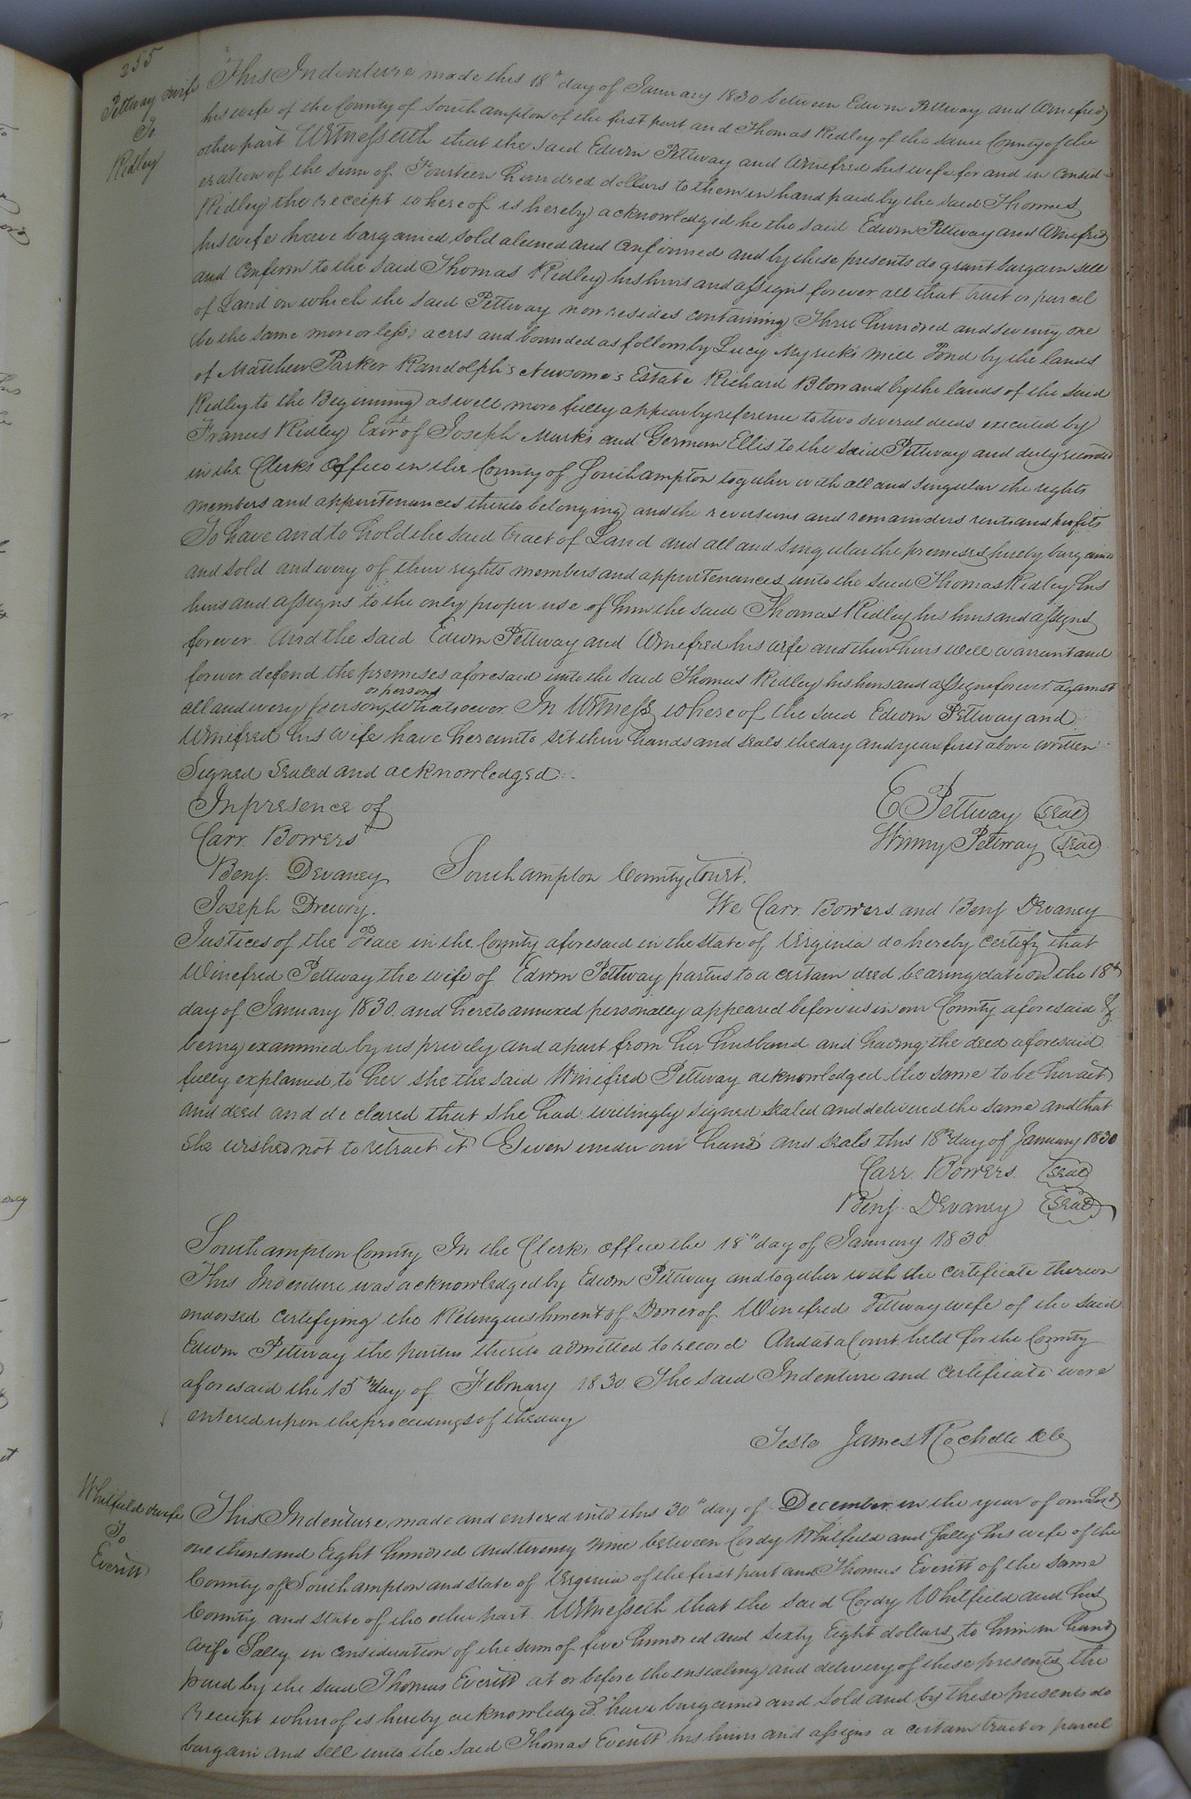 255
Pettway & wife
To
Ridley
This Indenture made this 18th day of January 1830 between Edwin Pettway and Winefred
his wife of the County of Southampton of the first part and Thomas Ridley of the same County of the
other part Witnesseth that the said Edwin Pettway and Winefred his wife for and in consid-
eration of the sum of Fourteen hundred dollars to them in hand paid by the said Thomas
Ridley the receipt whereof is hereby acknowledged he the said Edwin Pettway and Winefred
his wife have bargained, sold aliened and confirmed and by these presents do grant bargain sell
and Confirm to the said Thomas Ridley his heirs and assigns forever all that tract or parcel
of Land on which the said Pettway now resides containing Three hundred and seventy one
(be the same more or less) acres and bounded as follows by Lucy Myrick's Mill Pond by the lands
of Matthew Parker Randolph's Newsome's Estate Richard Blow and by the lands of the said
Ridley to the Beginning as well more fully appear by reference to two several deeds executed by
Francis Ridley Exor of Joseph Marks and German Ellis to the said Pettway and duly recorded
in the Clerks Office in the County of Southampton together with all and singular the rights
members and appurtenances thereto belonging and the reversions and remainders rents and profits
To have and to hold the said tract of Land and all and singular the premises hereby bargained
and sold and every of their rights members and appurtenances unto the said Thomas Ridley his
heirs and assigns to the only proper use of him the said Thomas Ridley his heirs and assigns
forever. And the said Edwin Pettway and Winefred his wife and their heirs will warrant and
forever defend the premises aforesaid unto the said Thomas Ridley his heirs and assigns forever against
or persons
all and every person whatsoever In Witness whereof the said Edwin Pettway and
Winefred his wife have hereunto set their hands and seals the day and year first above written
Signed Sealed and acknowledged
In presence of
E Pettway Seal
Carr Bowers
Winny Pettway Seal
Benj. Devaney
Southampton County Court.
Joseph Drewry.
We Carr Bowers and Benj Devaney
Justices of the Peace in the County aforesaid in the state of Virginia do hereby certify that
Winefred Pettway the wife of Edwin Pettway parties to a certain deed bearing date on the 18th
day of January 1830. and hereto annexed personally appeared before us in our County aforesaid &
being examined by us privily and apart from her husband and having the deed aforesaid
fully explained to her she the said Winefred Pettway acknowledged the same to be her act
and deed and declared that she had willingly signed sealed and delivered the same and that
she wished not to retract it Given under our hands and seals this 18th day of January 1830
Carr Bowers. Seal
Benj. Devaney Seal
Southampton County In the Clerks office the 18th day of January 1830
This Indenture was acknowledged by Edwin Pettway and together with the certificate thereon
endorsed certifying the Relinquishment of Dower of Winefred Pettway wife of the said
Edwin Pettway the parties thereto admitted to record And at a Court held for the County
aforesaid the 15th day of February 1830 The said Indenture and certificate were
entered upon the proceedings of the day
Teste James Rochelle Clk
Whitfield & wife
To
Everitt
This Indenture made and entered into this 30th day of December in the year of our Lord
one thousand Eight hundred and twenty nine between Cordy Whitfield and Sally his wife of the
County of Southampton and state of Virginia of the first part and Thomas Everitt of the same
County and state of the other part. Witnesseth that the said Cordy Whitfield and his
wife Sally in consideration of the sum of five hundred and sixty Eight dollars to him in hand
paid by the said Thomas Everitt at or before the ensealing and delivery of these presents the
Receipt whereof is hereby acknowledged have bargained and sold and by these presents do
bargain and sell unto the said Thomas Everitt his heirs and assigns a certain tract or parcel